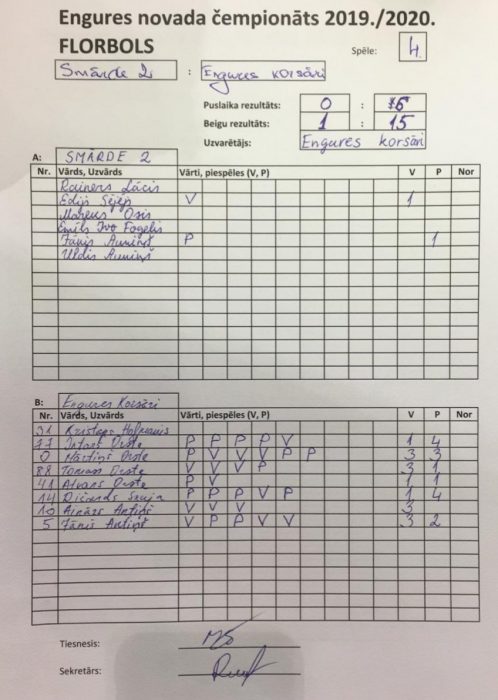 Engures novada čempionāts 2019./2020.
FLORBOLS Spēle: 4.
Smārde 2 : Engures korsāri
Puslaika rezultāts: 0 : 6
Beigu rezultāts: 1 : 15
Uzvarētājs: Engures korsāri
A: SMĀRDE 2
Nr. Vārds, Uzvārds Vārti, piespēles (V, P) V P Nor
Rainers Lācis
Edijs V 1
Osis
Emīls Ivo Fogelis
Jānis Auniņš P 1
Uldis Auniņš
B: Engures Korsāri
Nr. Vārds, Uzvārds Vārti, piespēles (V, P) V P Nor
31 Kristaps Hofmanis
77 Intars Oste P P P P V 1 4
0 Mārtiņš Oste P V V V P P 3 3
88 Tomass Oste V V V P 3 1
41 Aivars Oste P V 1 1
14 Ričards P P P V P 1 4
10 Ainārs Antiņš V V V 3
5 Jānis Antiņš V P P V V 3 2
Tiesnesis:
Sekretārs: